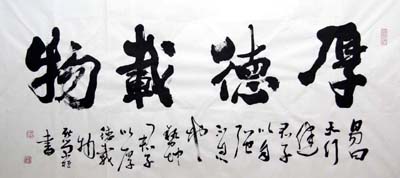 厚德載物
易曰
天行
健
君子
以自
強
不息
地
勢坤
君子
以厚
德載
物
書